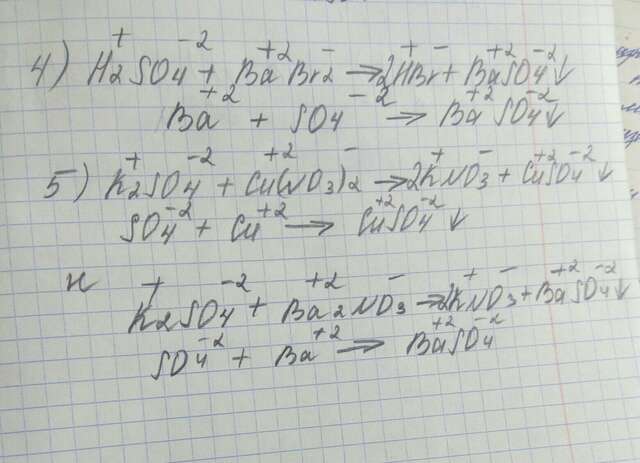 4) H₂⁺SO₄⁻² + Ba⁺²Br₂⁻ → 2H⁺Br⁻ + Ba⁺²SO₄⁻²↓
Ba⁺² + SO₄⁻² → Ba⁺²SO₄⁻²↓
5) K₂⁺SO₄⁻² + Cu⁺²(NO₃)₂⁻ → 2K⁺NO₃⁻ + Cu⁺²SO₄⁻²↓
SO₄⁻² + Cu⁺² → Cu⁺²SO₄⁻²↓
н K₂⁺SO₄⁻² + Ba⁺²₂NO₃⁻ → 2K⁺NO₃⁻ + Ba⁺²SO₄⁻²↓
SO₄⁻² + Ba⁺² → Ba⁺²SO₄⁻²